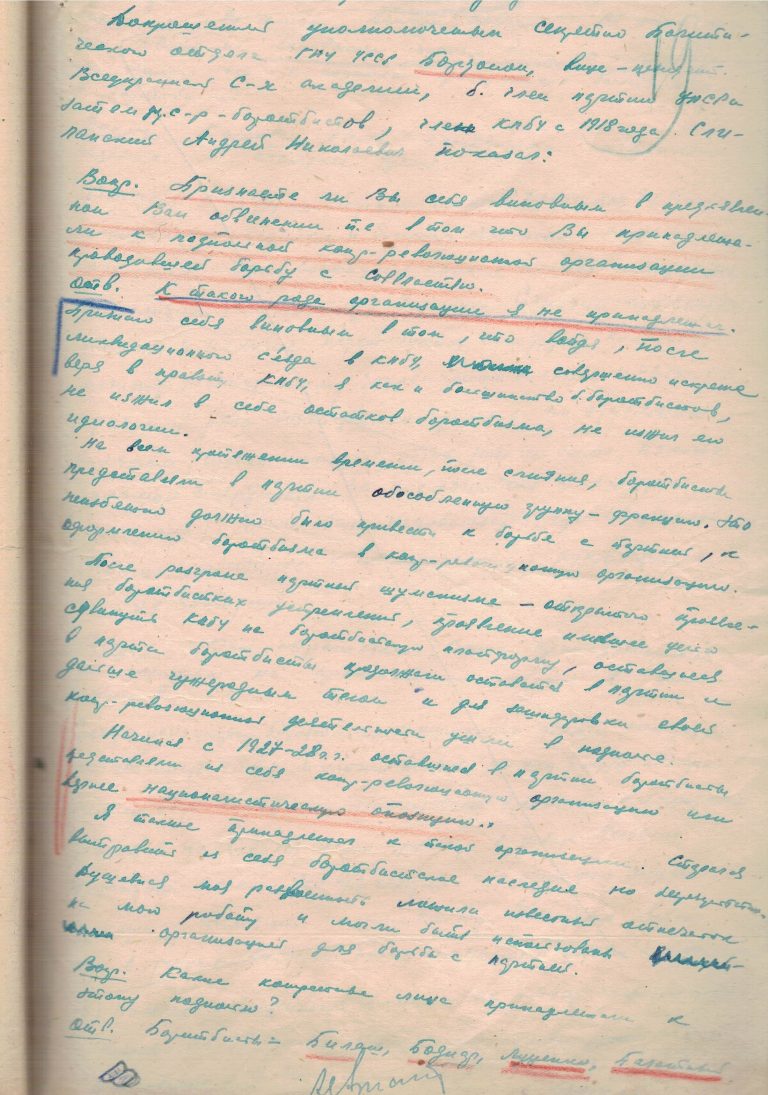 Допрошенный уполномоченным секретно политического отдела ГПУ УССР
Всеукраинской С-х академии, б. член партии УПСР и
затем у.с-р-боротбистов, член КПбУ с 1918 года Сли-
панский Андрей Николаевич показал:
Вопр. Признаете ли Вы себя виновным в предъявлен-
ном Вам обвинении т.е. в том что Вы принадлежа-
ли к подпольной контр-революционной организации
проводившей борьбу с соввластью.
Отв. К такого рода организации я не принадлежал.
Признаю себя виновным в том, что войдя, после
ликвидационного с'езда в КПбУ, совершенно искрене
веря в правоту КПбУ, я как и большинство б. боротбистов,
не изжил в себе остатков боротбизма, не изжил его
идиологии.
На всем протяжении времени, после слияния, боротбисты
представляли в партии обособленную группу-фракцию. Это
неизбежно должно было привести к борьбе с партией, к
оформлению боротбизма в контр-революционную организацию.
После разгрома партией шумскизма - открытого проявле-
ния боротбистких устремлений, проявление имевшее целью
сдвинуть КПбУ на боротбистскую платформу, оставшиеся
в партии боротбисты продолжали оставаться в партии и
дальше чужеродным телом и для зашифровки своей
контр-революционной деятельности ушли в подполье.
Начиная с 1927-28 г.г. оставшиеся в партии боротбисты
представляли из себя контр-революционную организацию или
вернее националистическую опозицию.
Я также принадлежал к этой организации. Старался
вытравить из себя боротбистское наследие но
моя ложили известный отпечаток
на мою работу и могли быть использованы
организацией для борьбы с партией.
Вопр. Какие конкретные лица принадлежали к
этому подполью?
Отв. Боротбисты - Билаш,